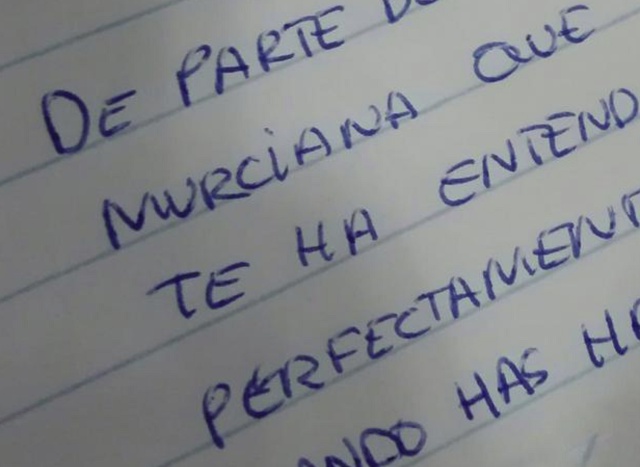 DE PARTE D
MURCIANA QUE
TE HA ENTEND
PERFECTAMENT
ANDO HAS HA